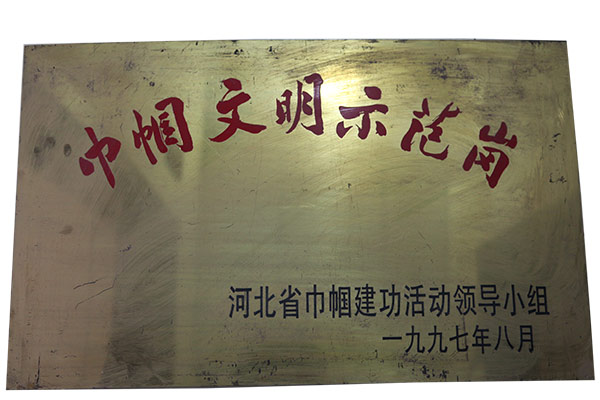 巾帼文明示范岗
河北省巾帼建功活动领导小组
一九九七年八月